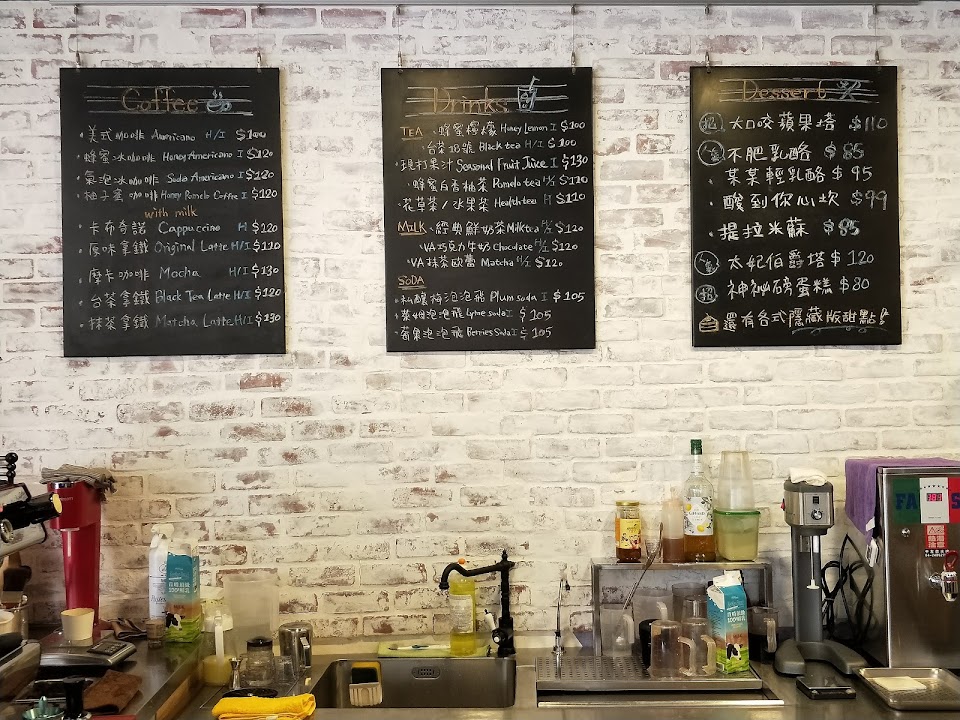 Coffee
美式咖啡 Americano H/I $100
蜂蜜冰咖啡 Honey Americano I $120
氣泡冰咖啡 Soda Americano I $120
柚子蜜咖啡 Honey Pomelo Coffee I $120
with milk
卡布奇諾 Cappuccino H $120
原味拿鐵 Original Latte H/I $120
摩卡咖啡 Mocha H/I $130
台茶拿鐵 Black Tea Latte H/I $120
抹茶拿鐵 Matcha Latte H/I $130
Drinks
TEA 蜂蜜檸檬 Honey Lemon I $100
台茶18號 Black tea H/I $100
現打果汁 Seasonal Fruit Juice I $130
蜂蜜白香柚茶 Pomelo tea H/I $110
花草茶/水果茶 Health tea H $110
MILK 經典鮮奶茶 Milk tea H/I $120
VA巧克力牛奶 Chocolate H/I $120
VA抹茶歐蕾 Matcha H/I $120
SODA
私釀梅泡泡飛 Plum soda I $105
萊姆泡泡飛 Lyme soda I $105
莓果泡泡飛 Berries Soda I $105
Dessert
招 大口咬蘋果塔 $110
人氣 不肥乳酪 $85
某某輕乳酪 $95
酸到你心坎 $99
提拉米蘇 $85
人氣 太妃伯爵塔 $120
招 神祕磅蛋糕 $80
還有各式隱藏版甜點!
FA S